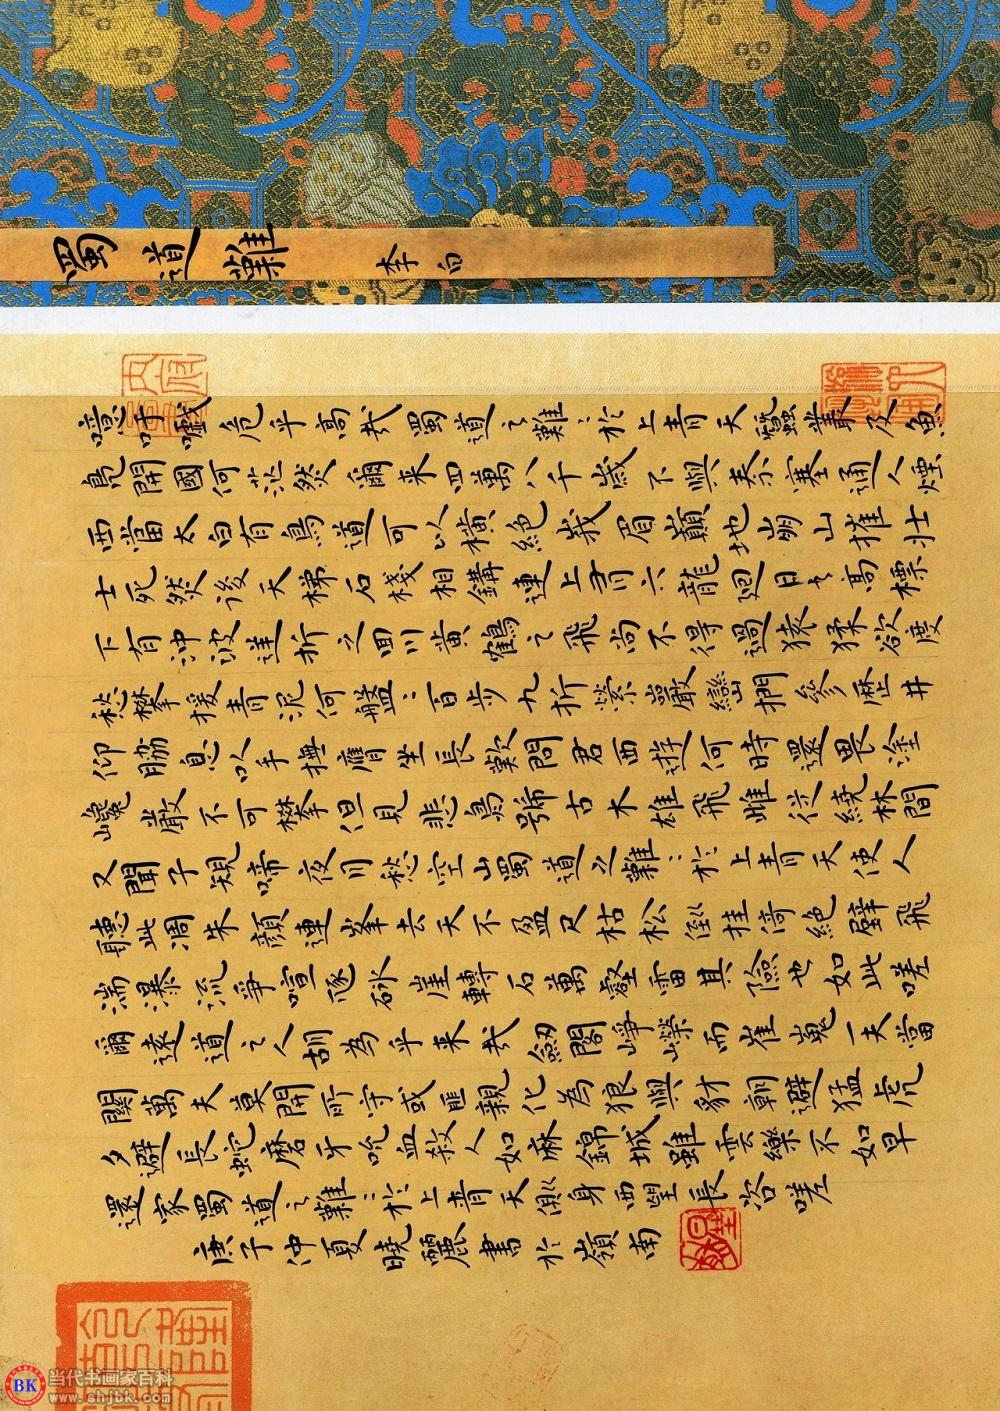 蜀道難 李白
噫吁嚱危乎高哉蜀道之難〻於上青天蠶叢及魚
鳧開國何茫然爾来四萬八千歲不與秦塞通人煙
西當太白有鳥道可以橫絕峨眉巔地崩山摧壯
士死然後天梯石棧相鉤連上有六龍迴日之高標
下有沖波逆折之回川黃鶴之飛尚不得過猿猱欲度
愁攀援青泥何盤〻百步九折縈巖巒捫參歷井
仰脇息以手撫膺坐長歎問君西遊何時還畏塗
巉巖不可攀但見悲鳥號古木雄飛雌從繞林間
又聞子規啼夜月愁空山蜀道之難〻於上青天使人
聽此凋朱顏連峯去天不盈尺枯松倒挂倚絕壁飛
湍瀑流爭喧豗砯崖轉石萬壑雷其險也如此嗟
爾遠道之人胡為乎来哉劍閣崢嶸而崔嵬一夫當
關萬夫莫開所守或匪親化為狼與豺朝避猛虎
夕避長蛇磨牙吮血殺人如麻錦城雖雲樂不如早
還家蜀道之難〻於上青天側身西望長咨嗟
庚子仲夏曉麗書於嶺南
BK 当代书画家百科
www.shjbk.com